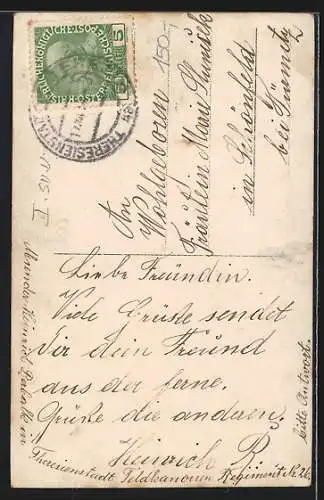 KAISERLICHE KÖNIGLICHE ÖSTERREICHISCHE POST
5
THERESIENSTADT
150,-
An
Wohlgeboren
Fräulein Marie
in Schönfeld
bei Türmitz
Liebe Freundin.
Viele Grüße sendet
Dir dein Freund
aus der ferne.
Grüße die anderen.
Heinrich R.
bitte Antwort.
Heinrich
in
Theresienstadt Feldkanonen Regiment Nr 26